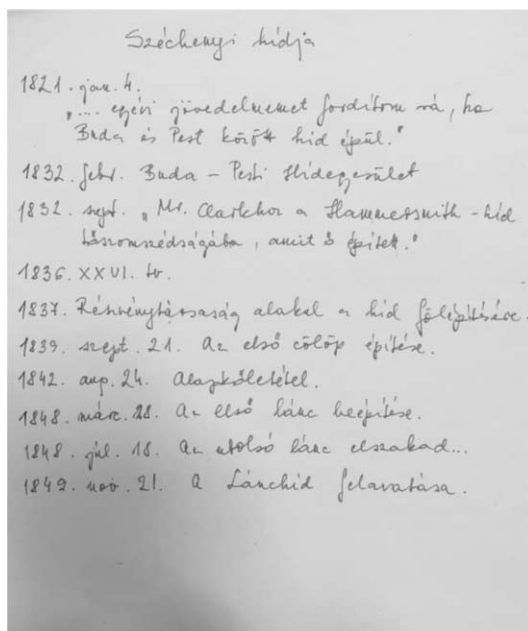 Széchenyi hídja
1821. jan. 4.
"... egyévi jövedelmemet fordítom rá, ha
Buda és Pest között híd épül."
1832. febr. Buda - Pesti Hídegyesület
1832. szept. "Mr. Clarkhoz a Hammersmith - híd
szomszédságába, amit ő épített."
1836. XXVI. tv.
1837. Részvénytársaság alakul a híd fölépítésére.
1839. szept. 21. Az első cölöp építése.
1842. aug. 24. Alapkőletétel.
1848. márc. 28. Az első lánc beépítése.
1848. júl. 18. Az utolsó lánc elszakad...
1849. nov. 21. A Lánchíd felavatása.